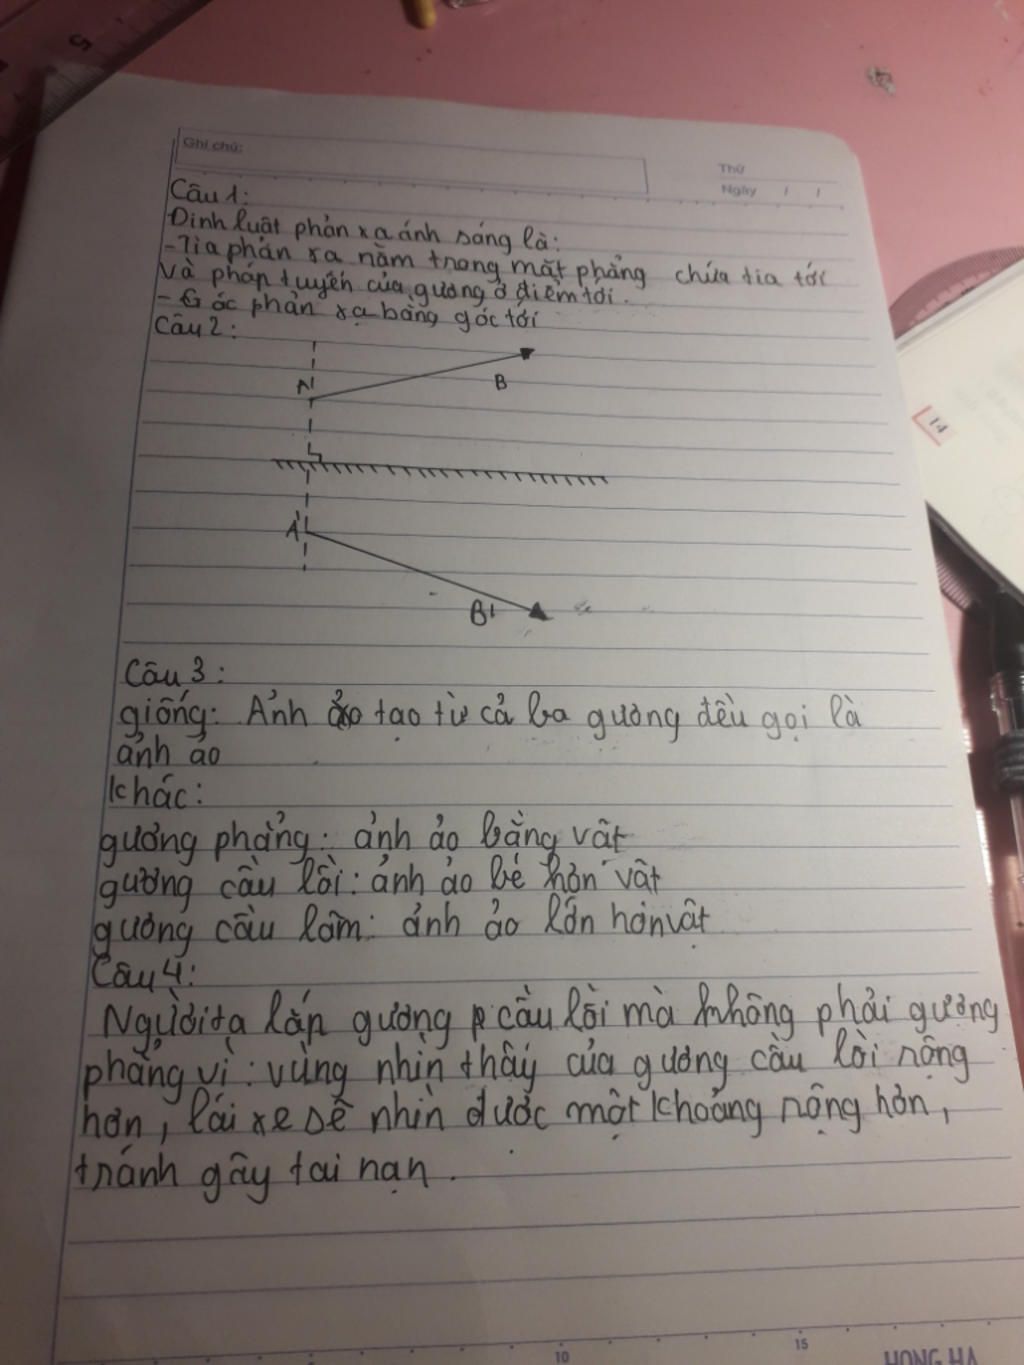 5
Ghi chú:
Thứ
Ngày / /
Câu 1:
Định luật phản xạ ánh sáng là:
- Tia phản xạ nằm trong mặt phẳng chứa tia tới
và pháp tuyến của gương ở điểm tới.
- Góc phản xạ bằng góc tới
Câu 2:
A
B
14
A'
B'
Câu 3:
giống: Ảnh ảo tạo từ cả ba gương đều gọi là
ảnh ảo
khác:
gương phẳng: ảnh ảo bằng vật
gương cầu lồi: ảnh ảo bé hơn vật
gương cầu lõm: ảnh ảo lớn hơn vật
Câu 4:
Người ta lắp gương cầu lồi mà không phải gương
phẳng vì: vùng nhìn thấy của gương cầu lồi rộng
hơn, lái xe sẽ nhìn được một khoảng rộng hơn,
tránh gây tai nạn.
10
15
HONG HA